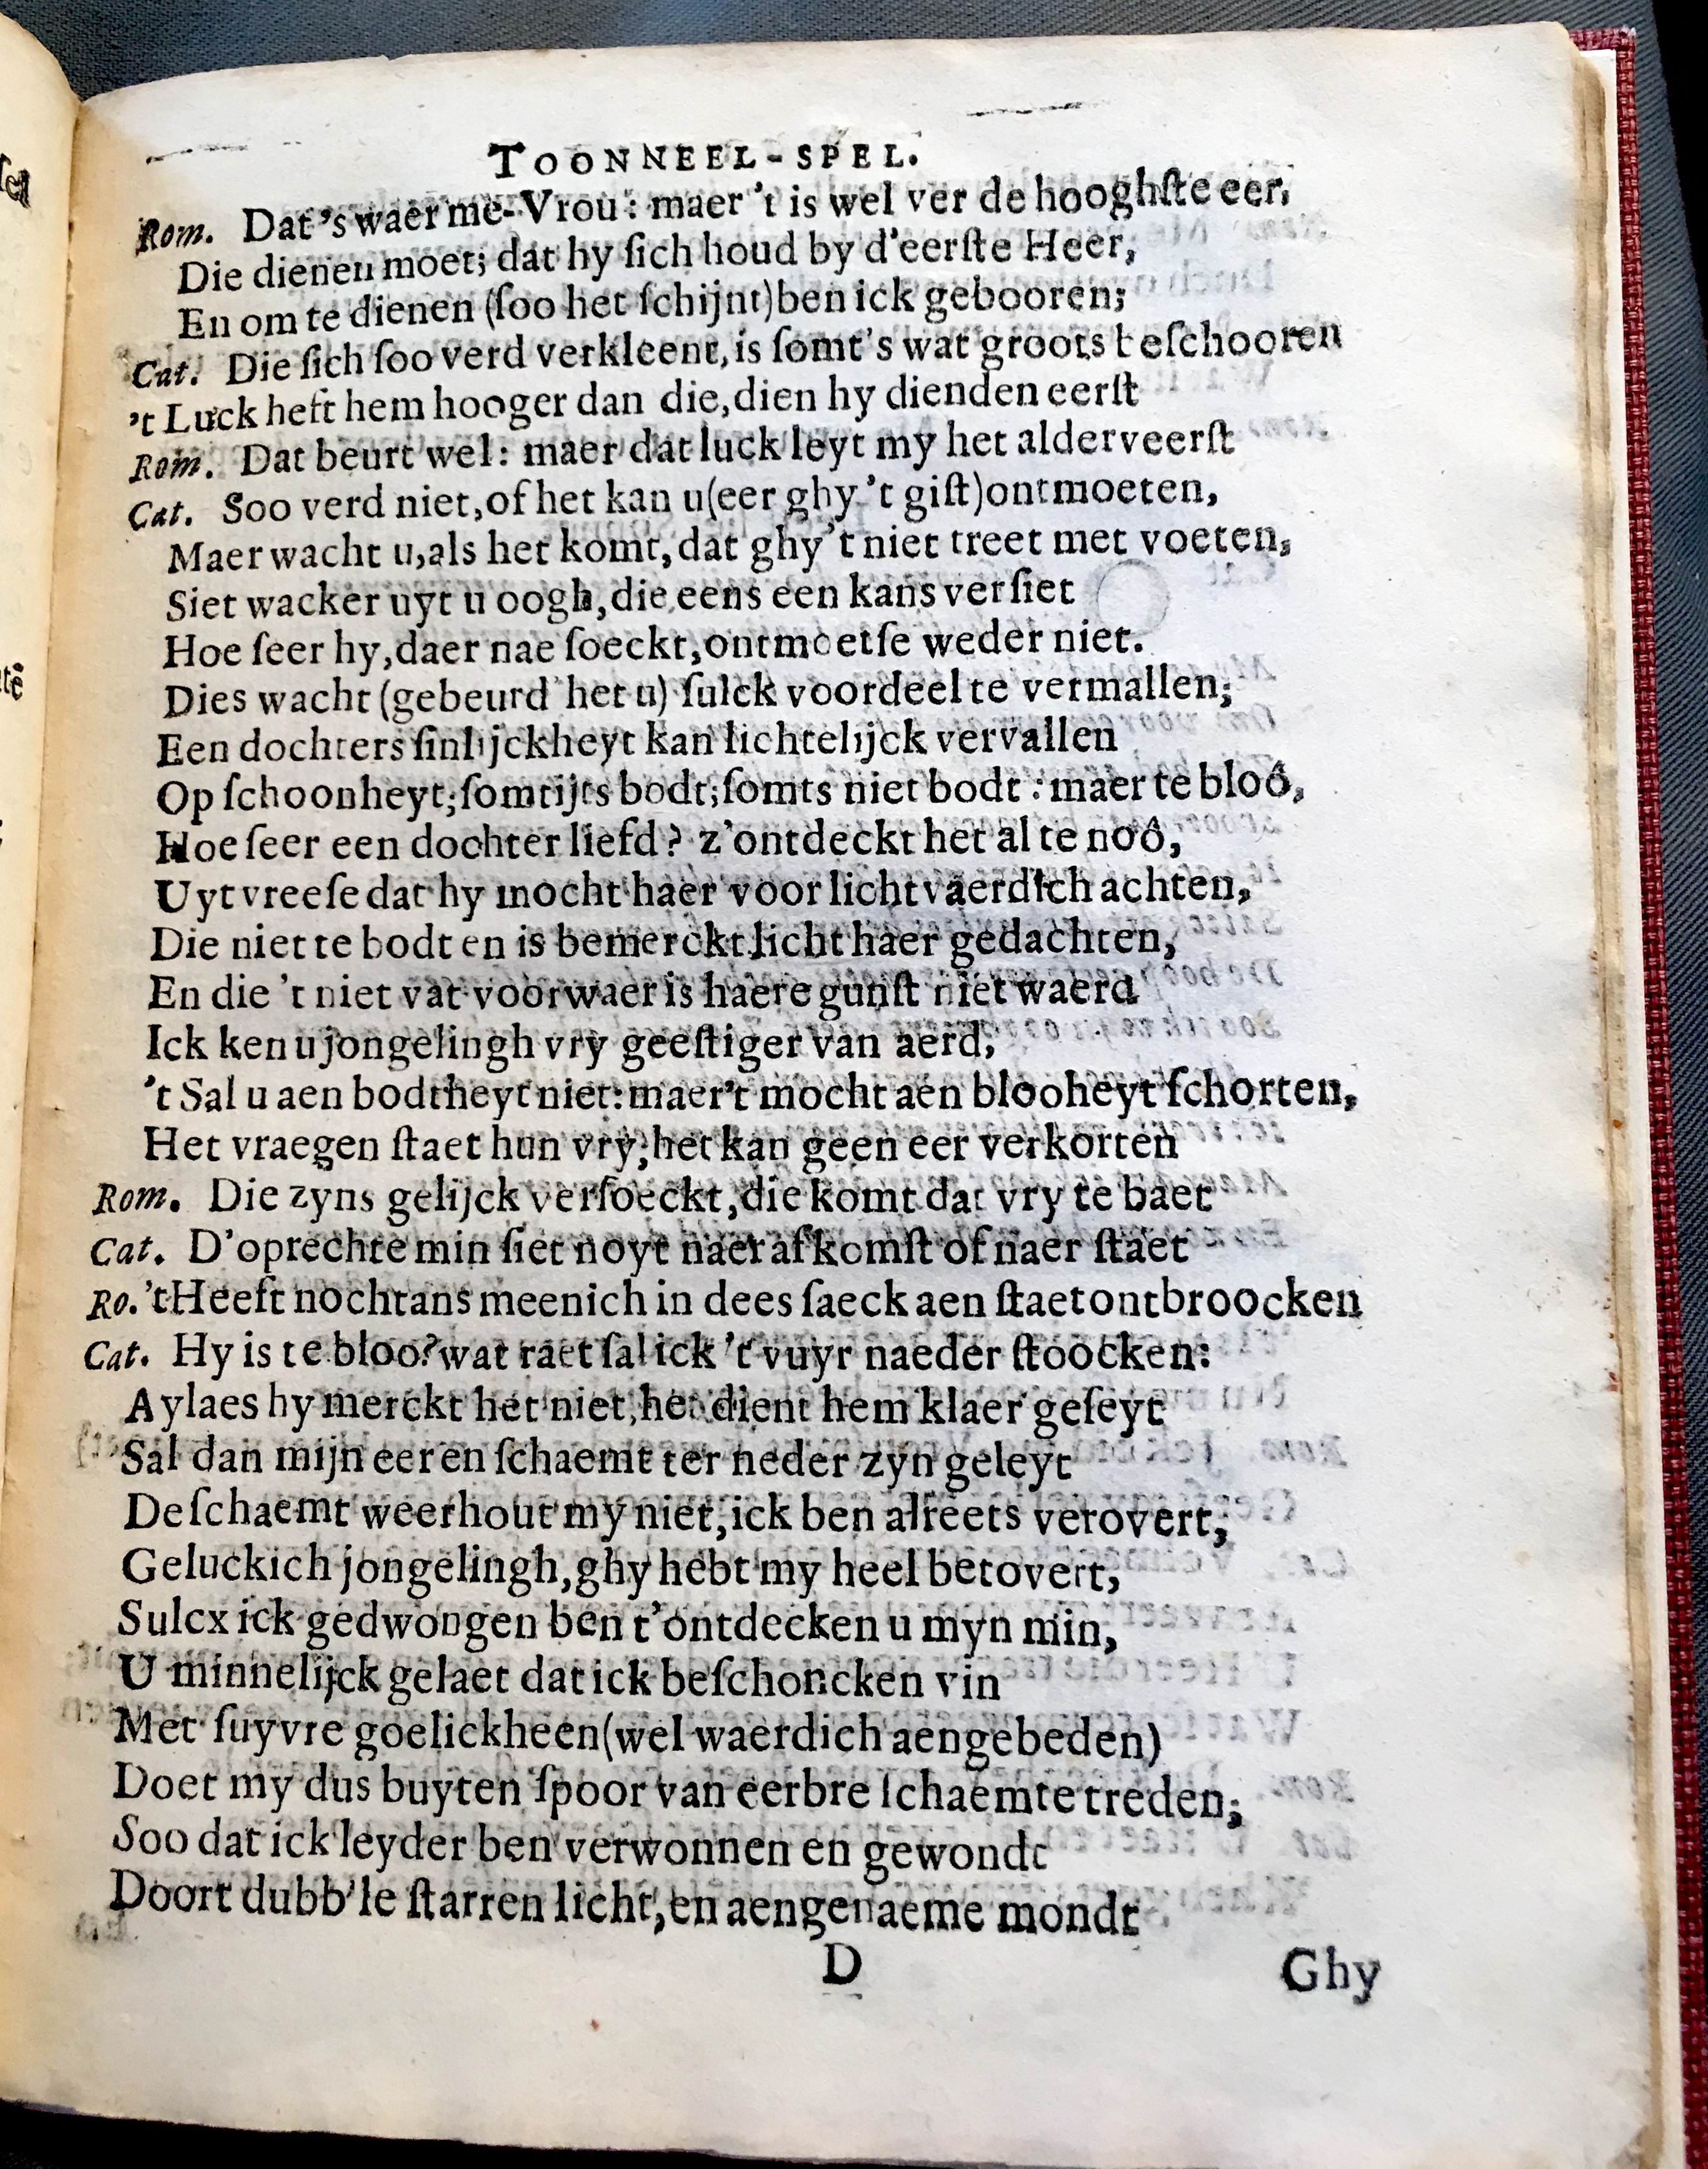 TOONNEEL-SPEL.
Rom. Dat 's waer me-Vrou: maer 't is wel ver de hooghſte eer,
Die dienen moet; dat hy ſich houd by d'eerſte Heer,
En om te dienen (ſoo het ſchijnt) ben ick gebooren;
Cat. Die ſich ſoo verd verkleent, is ſomt's wat groots beſchooren
't Luck heft hem hooger dan die, dien hy dienden eerſt
Rom. Dat beurt wel: maer dat luck leyt my het alderveerſt
Cat. Soo verd niet, of het kan u (eer ghy 't giſt) ontmoeten,
Maer wacht u, als het komt, dat ghy 't niet treet met voeten,
Siet wacker uyt u oogh, die eens een kans verſiet
Hoe ſeer hy, daer nae ſoeckt, ontmoetſe weder niet.
Dies wacht (gebeurd het u) ſulck voordeel te vermallen;
Een dochters ſinlijckheyt kan lichtelijck vervallen
Op ſchoonheyt; ſomtijts bodt; ſomts niet bodt: maer te bloô,
Hoe ſeer een dochter liefd? z'ontdeckt het al te noô,
Uyt vreeſe dat hy mocht haer voor lichtvaerdich achten,
Die niet te bodt en is bemerckt licht haer gedachten,
En die 't niet vat voorwaer is haere gunſt niet waerd
Ick ken u jongelingh vry geeſtiger van aerd,
't Sal u aen bodtheyt niet: maer't mocht aen blooheyt ſchorten,
Het vraegen ſtaet hun vry; het kan geen eer verkorten
Rom. Die zyns gelijck verſoeckt, die komt dat vry te baet
Cat. D'oprechte min ſiet noyt naer afkomſt of naer ſtaet
Ro. 't Heeft nochtans meenich in dees ſaeck aen ſtaet ontbroocken
Cat. Hy is te bloo? wat raet ſal ick 't vuyr naeder ſtoocken:
Aylaes hy merckt het niet, het dient hem klaer geſeyt
Sal dan mijn eer en ſchaemt ter neder zyn geleyt
De ſchaemt weerhout my niet, ick ben alreets verovert,
Geluckich jongelingh, ghy hebt my heel betovert,
Sulcx ick gedwongen ben t'ontdecken u myn min,
U minnelijck gelaet dat ick beſchoncken vin
Met ſuyvre goelickheen (wel waerdich aengebeden)
Doet my dus buyten ſpoor van eerbre ſchaemte treden;
Soo dat ick leyder ben verwonnen en gewondt
Doort dubb'le ſtarren licht, en aengenaeme mondt
D
Ghy